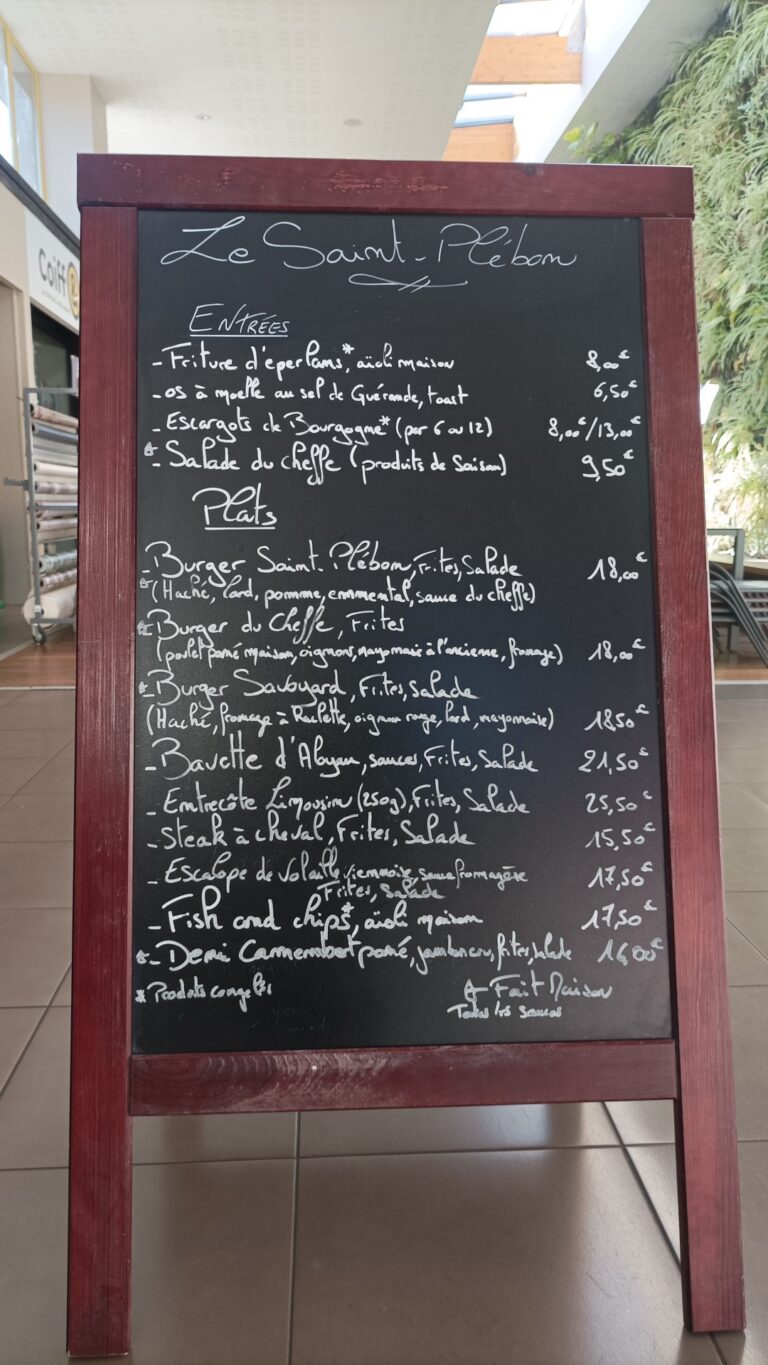 Coiff
Le Saint-Plébon
ENTRÉES
- Friture d'éperlans*, aïoli maison 8,00€
- os à moelle au sel de Guérande, toast 6,50€
- Escargots de Bourgogne* (par 6 ou 12) 8,00€/13,00€
- Salade du cheffe (produits de saison) 9,50€
Plats
- Burger Saint-Plébon, Frites, Salade 18,00€
(Haché, lard, pomme, emmental, sauce du cheffe)
- Burger du Cheffe, Frites
(poulet pané maison, oignons, mayo maïs à l'ancienne, fromage) 18,00€
- Burger Savoyard, Frites, Salade
(Haché, fromage à Raclette, oignon rouge, lard, mayonnaise) 18,50€
- Bavette d'Aloyau, sauces, Frites, Salade 21,50€
- Entrecôte Limousin (250g), Frites, Salade 25,50€
- Steak à cheval, Frites, Salade 15,50€
- Escalope de Volaille viennoise, sauce fromagère 17,50€
Frites, Salade
- Fish and chips*, aïoli maison 17,50€
- Demi Camembert pané, jambon cru, frites, salade €
* Produits congelés
Fait Maison
Toutes les sauces